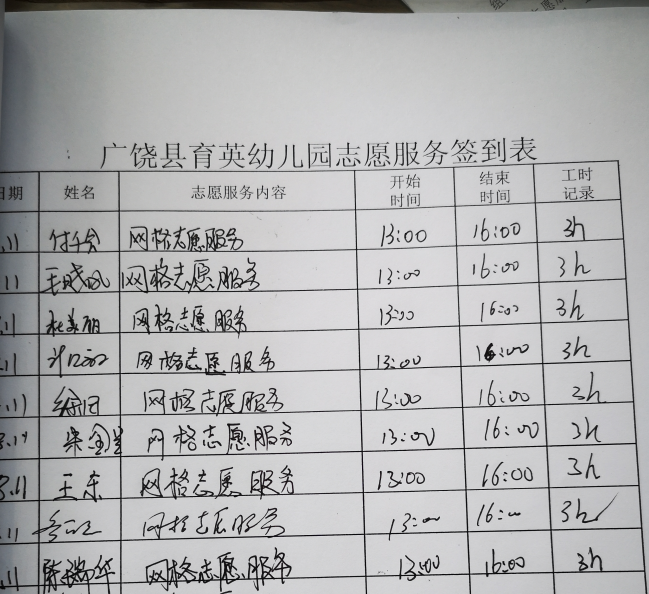 广饶县育英幼儿园志愿服务签到表
日期 姓名 志愿服务内容 开始时间 结束时间 工时记录
.11 网格志愿服务 13:00 16:00 3h
11 王晓帆 网格志愿服务 13:00 16:00 3h
.11 杜美丽 网格志愿服务 13:00 16:00 3h
.11 网格志愿服务 13:00 16:00 3h
.11 网格志愿服务 13:00 16:00 3h
3.11 网格志愿服务 13:00 16:00 3h
3.11 王东 网格志愿服务 13:00 16:00 3h
.11 网格志愿服务 13:00 16:00 3h
.11 陈瑞华 网格志愿服务 13:00 16:00 3h